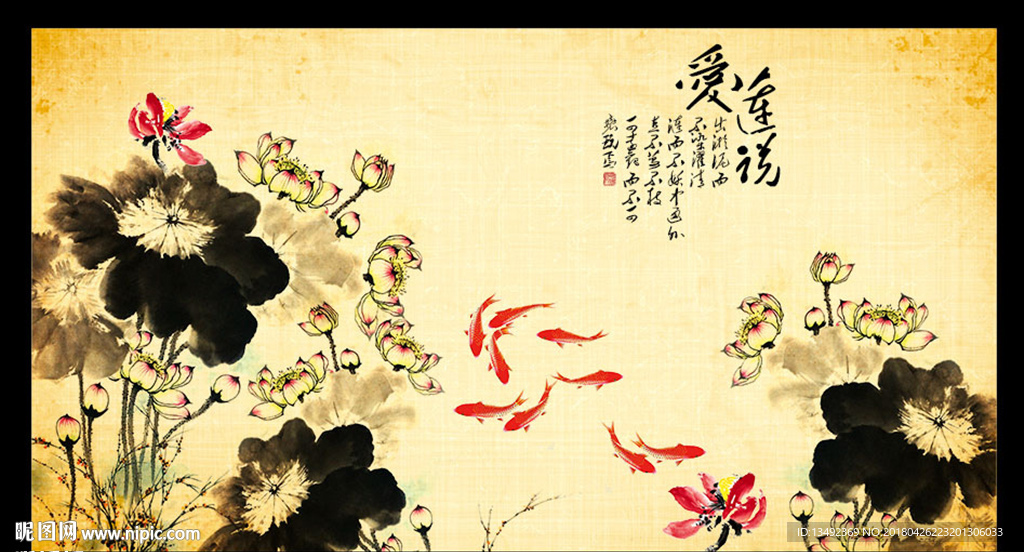 愛莲说
出淤泥而
不染濯清
涟而不妖中通外
直不蔓不枝
可远观而不可
亵玩焉
昵图网 www.nipic.com
ID:13492369 NO:20180426223201306033